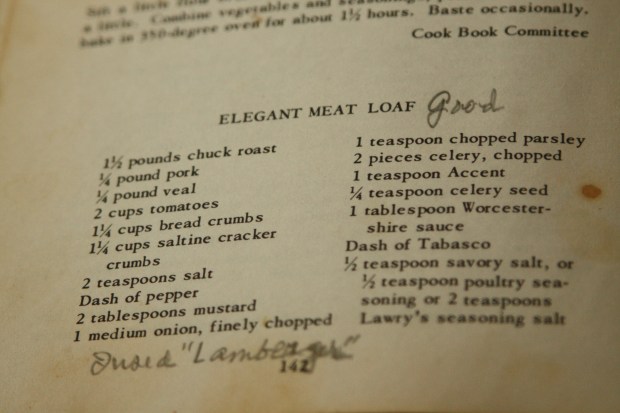 a little. Combine vegetables and seasoning,
bake in 350-degree oven for about 1½ hours. Baste occasionally.
Cook Book Committee
ELEGANT MEAT LOAF Good
1½ pounds chuck roast
¼ pound pork
¼ pound veal
2 cups tomatoes
1¼ cups bread crumbs
1¼ cups saltine cracker
crumbs
2 teaspoons salt
Dash of pepper
2 tablespoons mustard
1 medium onion, finely chopped
1 teaspoon chopped parsley
2 pieces celery, chopped
1 teaspoon Accent
¼ teaspoon celery seed
1 tablespoon Worcester-
shire sauce
Dash of Tabasco
½ teaspoon savory salt, or
½ teaspoon poultry sea-
soning or 2 teaspoons
Lawry's seasoning salt
I used "Lamburger"
142